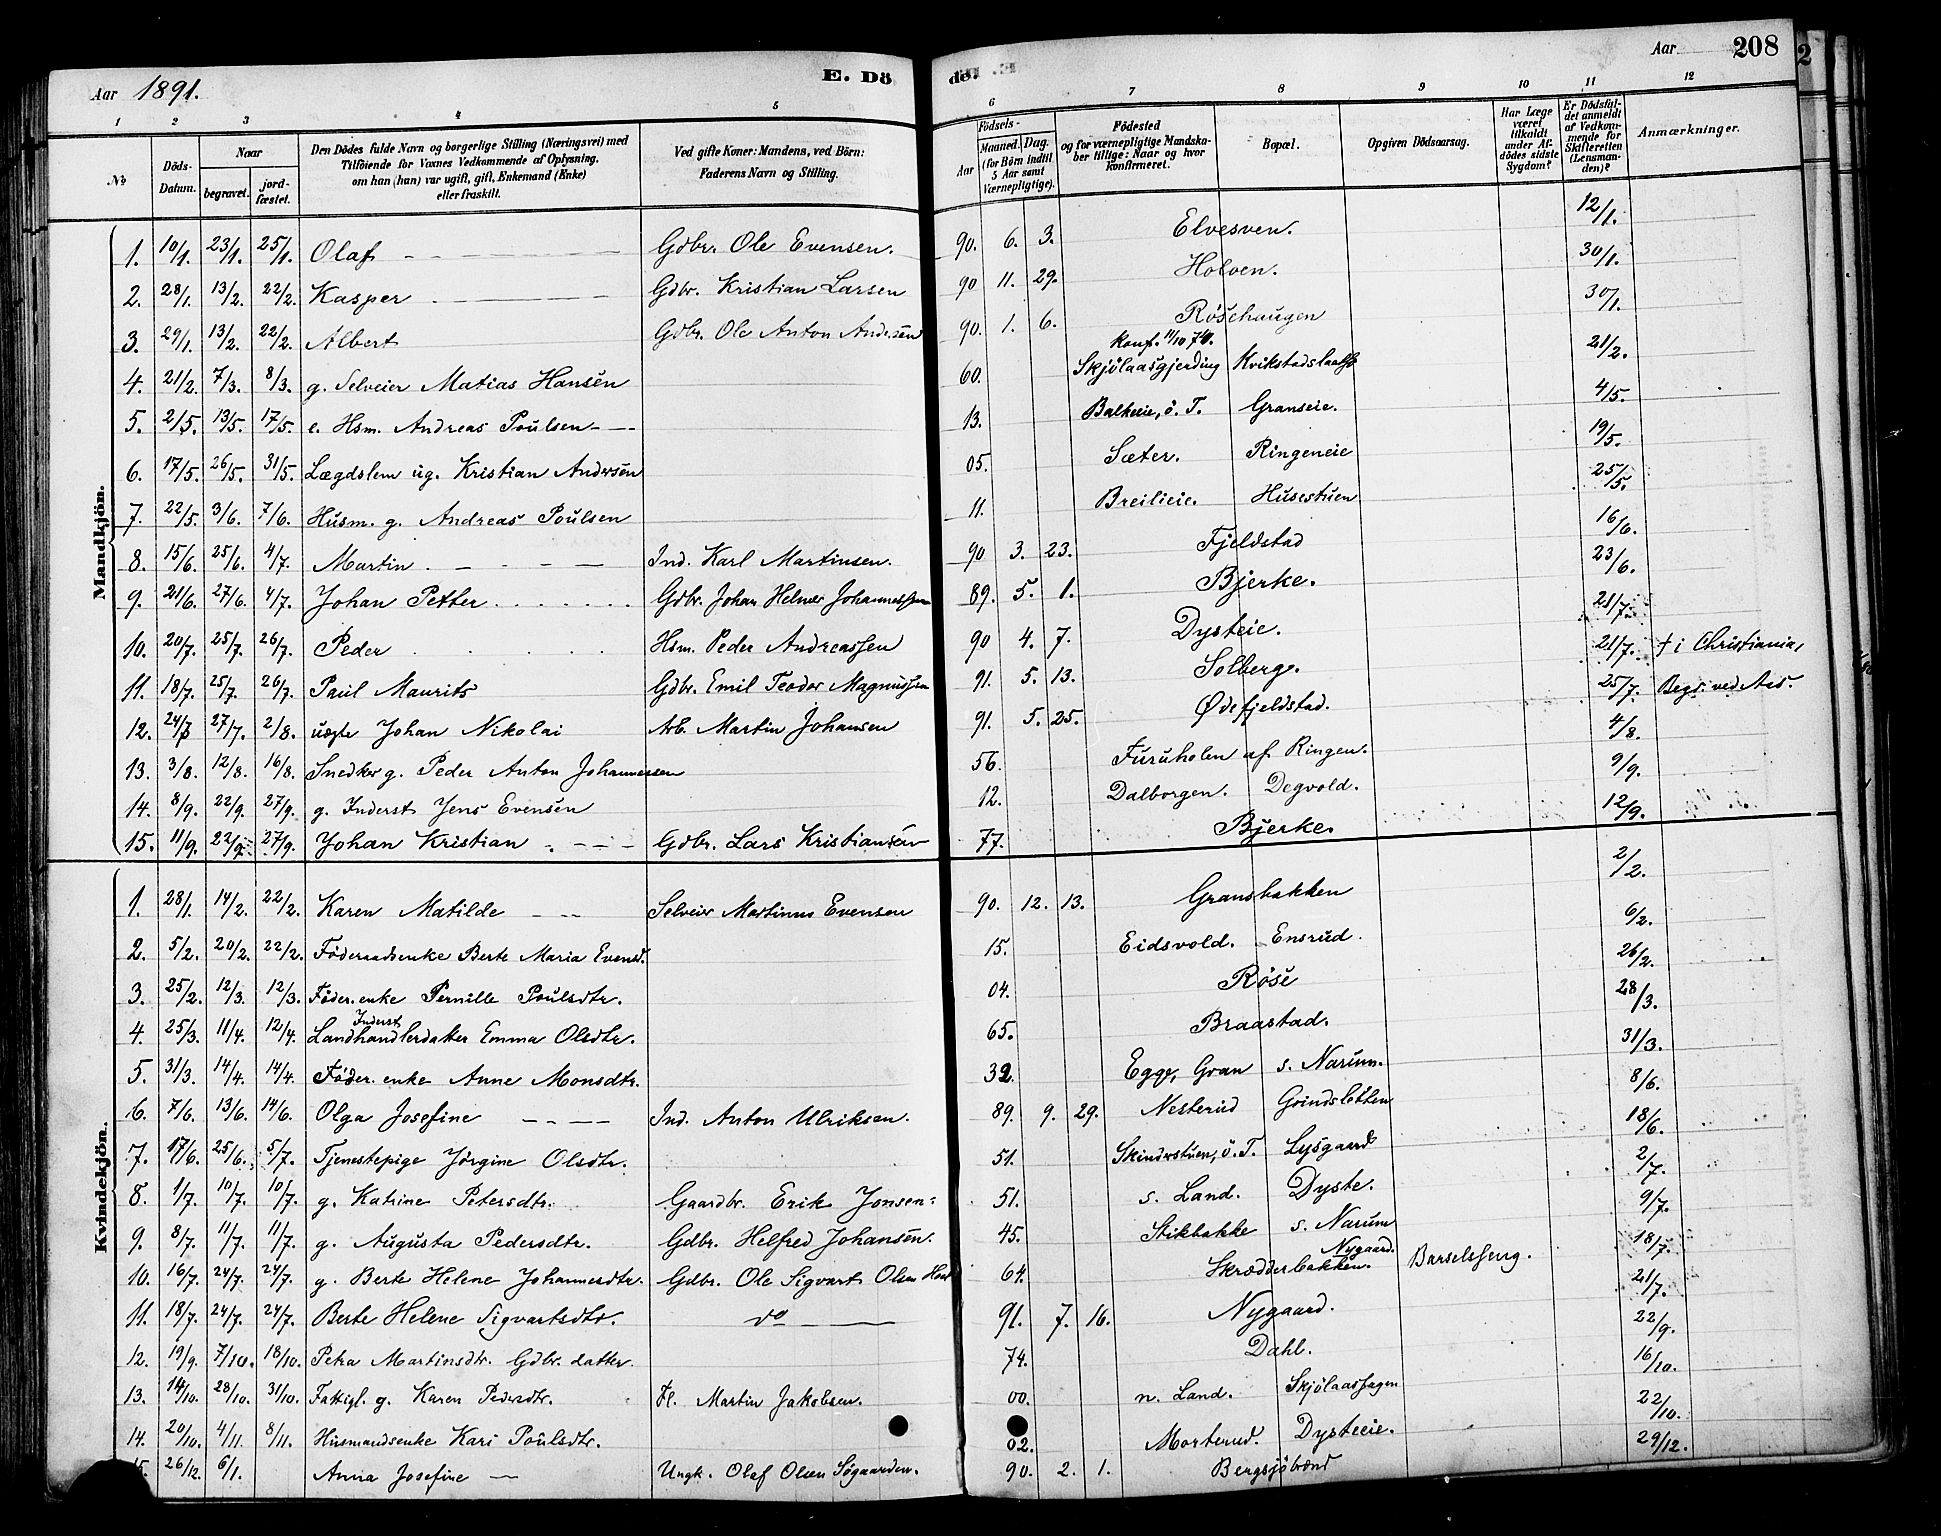 Aar 1891. E. Dö
de. Aar 208
1 2 3 4 5 6 7 8 9 10 11 12
No. Döds-Datum. Naar begravet. jordfæstet. Den Dödes fulde Navn og borgerlige Stilling (Næringsvei) med Tilföiende for Voxnes Vedkommende af Oplysning, om han (hun) var ugift, gift, Enkemand (Enke) eller fraskilt. Ved gifte Koner: Mandens, ved Börn: Faderens Navn og Stilling. Födsels- Aar Maaned. Dag. (for Börn indtil 5 Aar samt Værnepligtige). Födested og for værnepligtige Mandskaber tillige: Naar og hvor konfirmeret. Bopæl. Opgiven Dödsaarsag. Har Læge været tilkaldt under Afdödes sidste Sygdom? Er Dödsfaldet anmeldt af Vedkommende for Skifteretten (Lensmanden)? Anmærkninger.
Mandkjön.
1. 10/1. 23/1. 25/1. Olaf Gdbr. Ole Evensen. 90. 6. 3. Elvesven. 12/1.
2. 28/1. 13/2. 22/2. Kasper Gdbr. Kristian Larsen 90 11. 29. Holven. 30/1.
3. 29/1. 13/2. 22/2. Albert Gdbr. Ole Anton Andersen 90. 1. 6. Röschaugen 30/1.
4. 21/2. 7/3. 8/3. g. Selveier Matias Hansen 60. Konf. 11/10 74. Skjölaasgjerding 21/2.
5. 2/5. 13/5. 17/5. e. Hsm. Andreas Poulsen 13. Balkeie, ö. T. Granseie. 4/5.
6. 17/5. 26/5. 31/5. Lægdslem ug. Kristian Andersen 05. Sæter. Ringeneie 19/5.
7. 22/5. 3/6. 7/6. Husm. g. Andreas Poulsen 11. Breilieie. Husestuen 25/5.
8. 15/6. 25/6. 4/7. Martin Ind. Karl Martinsen. 90 3. 23. Fjeldstad 16/6.
9. 21/6. 27/6. 4/7. Johan Petter Gdbr. Johan Helmer Johannessen 89. 5. 1. Bjerke. 23/6.
10. 20/7. 25/7. 26/7. Peder Hsm. Peder Andreassen 90 4. 7. Dysteie. 21/7.
11. 18/7. 25/7. 26/7. Paul Maurits Gdbr. Emil Teodor Magnussen 91. 5. 13. Solberg. 21/7. † i Christiania,
12. 24/7 27/7. 2/8. uægte Johan Nikolai Arb. Martin Johansen 91. 5. 25. Ødefjeldstad. 25/7. Begr. ved Aas.
13. 3/8. 12/8. 16/8. Snedker g. Peder Anton Johannessen 56. Furuholen af Ringen. 4/8.
14. 8/9. 22/9. 27/9. g. Inderst Jens Evensen 12. Dalborgen. Degvold. 9/9.
15. 11/9. 22/9. 27/9. Johan Kristian Gdbr. Lars Kristiansen 77. Bjerke. 12/9.
Kvindekjön.
1. 28/1. 14/2. 22/2. Karen Matilde Selveier Martinus Evensen 90. 12. 13. Gransbakken 2/2.
2. 5/2. 20/2. 22/2. Föderaadsenke Berte Maria Evensd. 15. Eidsvold. Ensrud. 6/2.
3. 25/2. 12/3. 12/3. Föder. enke Pernille Poulsdtr. 04. Röise 26/2.
4. 25/3. 11/4. 12/4. Inderst Landhandlerdatter Emma Olsdtr. 65. Braastad. 28/3.
5. 31/3. 14/4. 14/4. Föder. enke Anne Monsdtr. 32. Egge, Gran s. Narum. 31/3.
6. 7/6. 13/6. 14/6. Olga Josefine Ind. Anton Ulriksen. 89. 9. 29. Nesterud Grindsletten 8/6.
7. 17/6. 25/6. 5/7. Tjenestepige Jörgine Olsdtr. 51. Skinderstuen, ö. T. Lysgaard 18/6.
8. 1/7. 10/7. 10/7. g. Katrine Petersdtr. Gaardbr. Erik Jonsen. 51. s. Land. Dyste. 2/7.
9. 8/7. 11/7. 11/7. g. Augusta Pedersdtr. Gdbr. Helfred Johansen. 45. Stikbakke s. Narum 9/7.
10. 16/7. 24/7. 24/7. g. Berte Helene Johannesdtr. Gdbr. Ole Sigvart Olsen 64. Skrædderbakken. Nygaard. Barselsseng. 18/7.
11. 18/7. 24/7. 24/7. Berte Helene Sigvartsdtr. do 91. 7. 16. Nygaard. 21/7.
12. 19/9. 7/10. 18/10. Petra Martinsdtr. Gdbr. datter. 74. Dahl. 22/9.
13. 14/10. 28/10. 31/10. Fattigl. g. Karen Pedersdtr. Fl. Martin Jakobsen. 00. n. Land. Skjölaashagen 16/10.
14. 20/10. 4/11. 8/11. Husmandsenke Kari Poulsdtr. 02. Morterud. Dysteeie. 22/10.
15. 26/12. 6/1. Anna Josefine Ungk. Olaf Olsen Søgaarden. 90. 2. 1. Bergsjöbrænd 29/12.